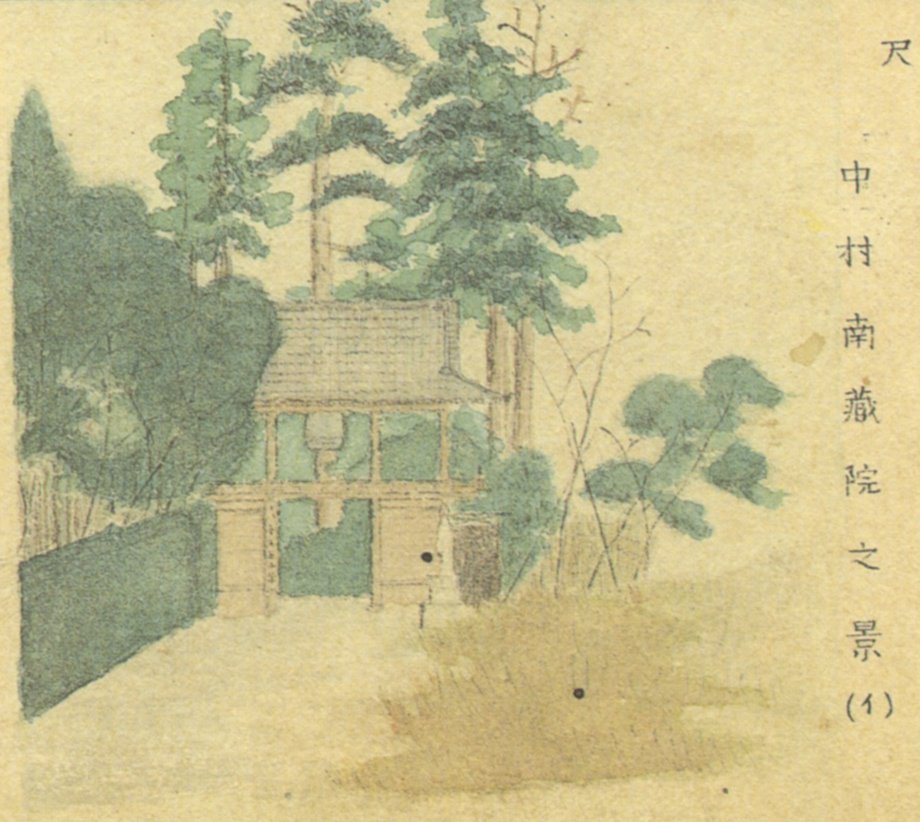 尺
中村南藏院之景(イ)